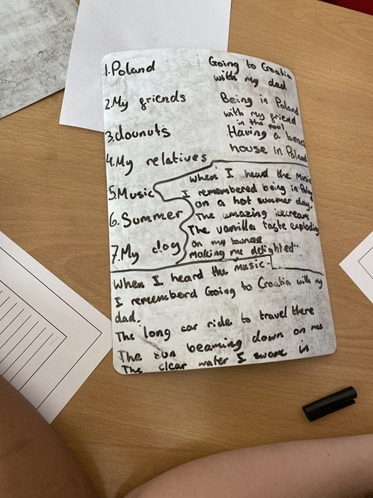 1.Poland
2.My friends
3.dounuts
4.My relatives
5.Music
6.Summer
7.My dog
Going to Croatia
with my dad
Being in Poland
with my friend
in the pool
Having a beach
house in Poland
When I heard the music
I remembered being in Poland
on a hot summer day.
The amazing icecream
The vanilla taste exploding
on my tounge
making me delighted".
When I heard the music
I rememberd Going to Croatia with my
dad.
The long car ride to travel there
The sun beaming down on me
The clear water I swam in